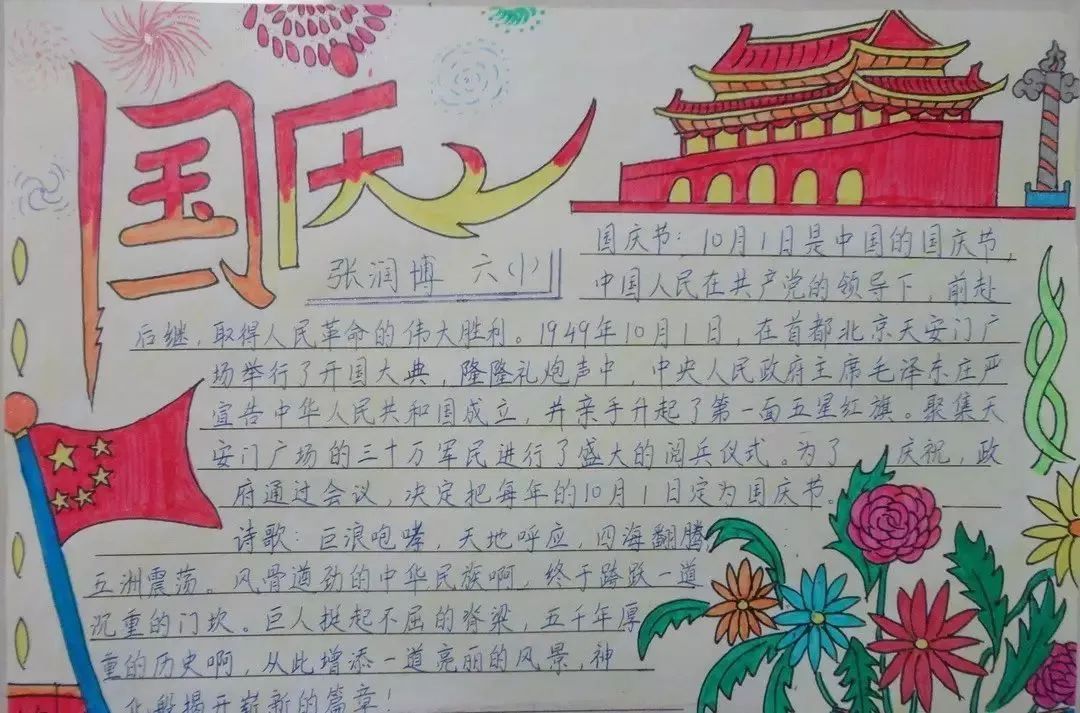 国庆
张润博 六(1)
国庆节：10月1日是中国的国庆节，
中国人民在共产党的领导下，前赴
后继，取得人民革命的伟大胜利。1949年10月1日，在首都北京天安门广
场举行了开国大典，隆隆礼炮声中，中央人民政府主席毛泽东庄严
宣告中华人民共和国成立，并亲手升起了第一面五星红旗。聚集天
安门广场的三十万军民进行了盛大的阅兵仪式。为了 庆祝，政
府通过会议，决定把每年的10月1日定为国庆节。
诗歌：巨浪咆哮，天地呼应，四海翻腾，
五洲震荡。风骨遒劲的中华民族啊，终于跨跃一道
沉重的门坎。巨人挺起不屈的脊梁，五千年厚
重的历史啊，从此增添一道亮丽的风景，神
化般揭开崭新的篇章！